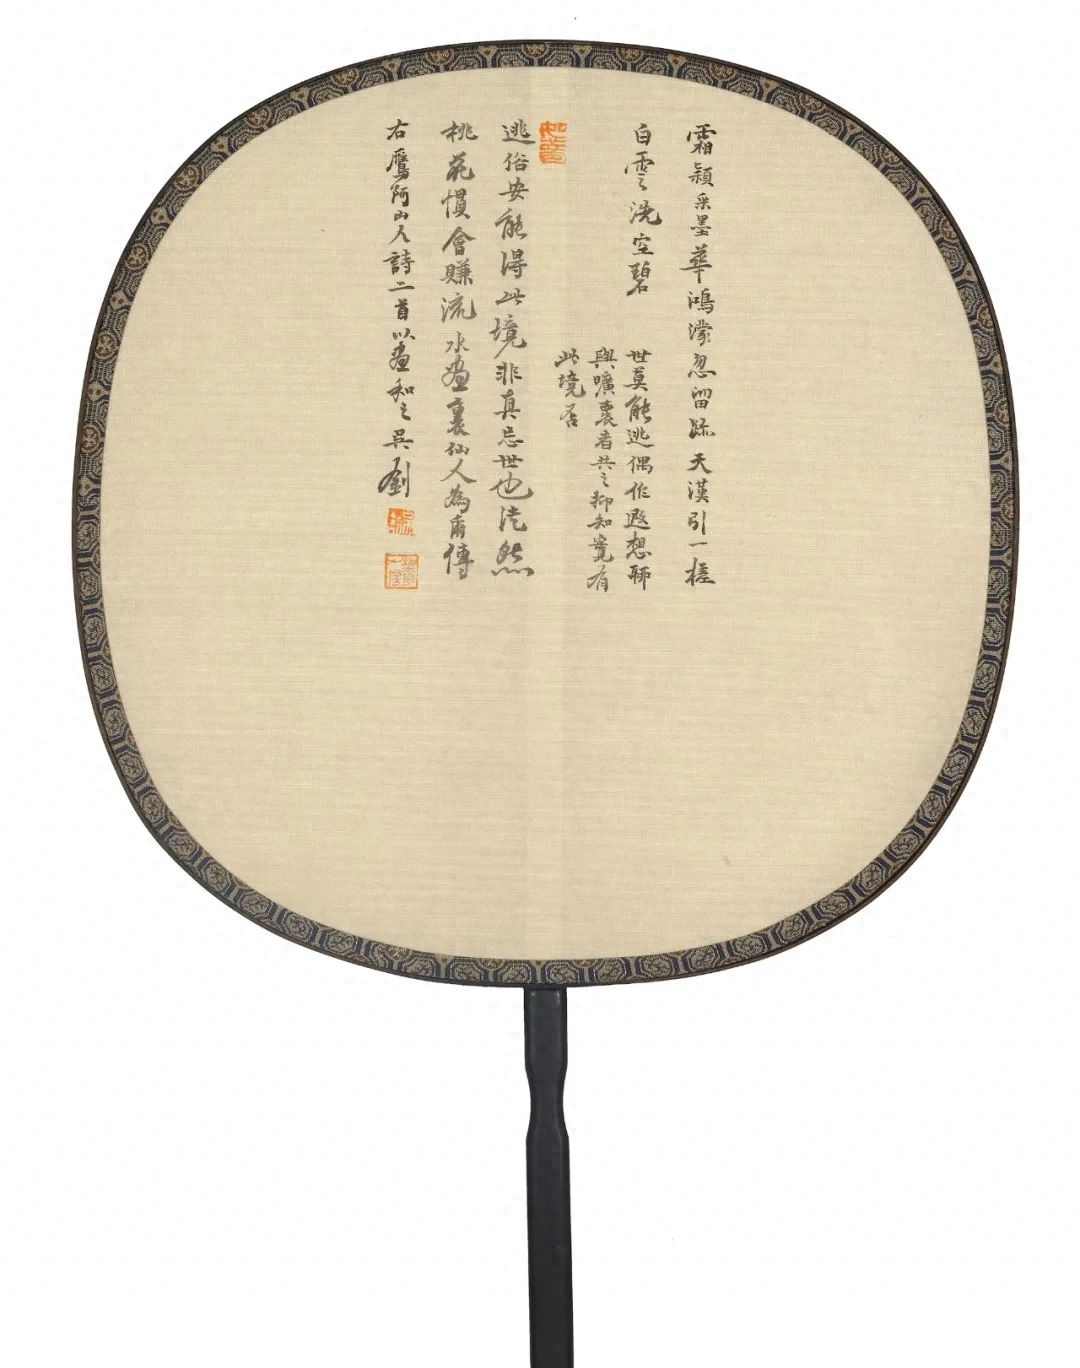 霜穎采墨華鴻濛忽留跡天漢引一槎
白雲洗空碧
世莫能逃偶作遐想聊
與曠襄者共之抑知寛有
此境否
逃俗安能得此境非真忘世也茫然
桃花慣會賺流水畫裏仙人為甫傳
右鷹阿山人詩二首以畫和之吳劉